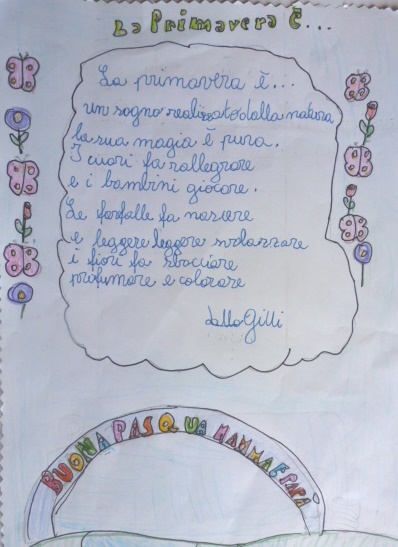 La Primavera È...
La primavera è...
un sogno realizzato dalla natura
la sua magia è pura.
I cuori fa rallegrare
e i bambini giocare.
Le farfalle fa nascere
e leggere leggere svolazzare
i fiori fa sbocciare
profumare e colorare
dalla Gilli
BUONA PASQUA MAMMA E PAPÀ